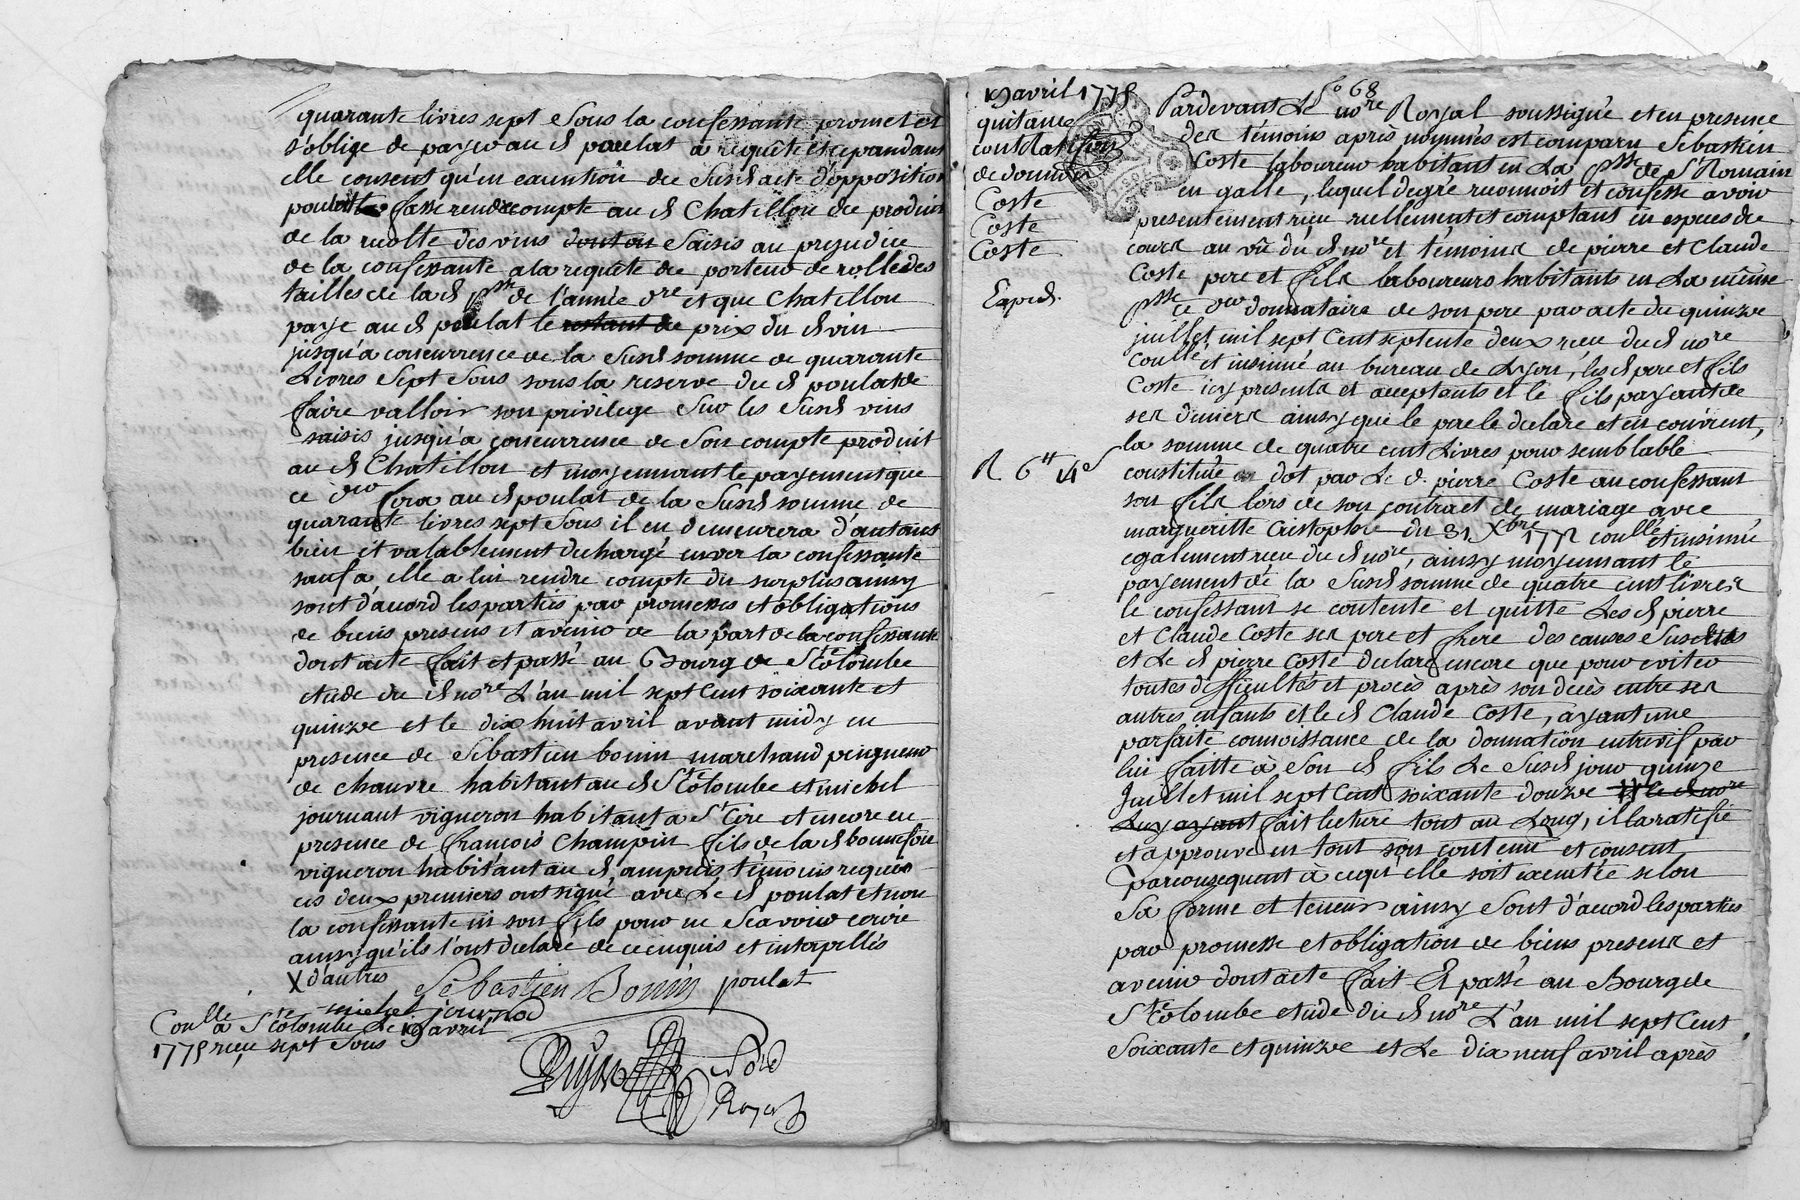 quarante livres sept sous la confessante promet et
s'oblige de payer au d poulat a requête et cependant
elle consent qu'en caution du susd acte d'opposition
poulat fasse rendre compte au d Chatillon du produit
de la recolte des vins dont on saisis au prejudice
de la confessante a la requête du porteur de rolle des
tailles de lad psse de l'année dre et que Chatillon
paye au d poulat le restant du prix du d vin
jusqu'a concurrence de la susd somme de quarante
Livres sept sous sous la reserve du d poulat de
faire valloir son privilege sur les susd vins
saisis jusqu'a concurrence de son compte produit
au d Chatillon et moyennant le payement que
ce der fera au d poulat de la susd somme de
quarante livres sept sous il en demeurera d'autant
bien et valablement dechargé enver la confessante
sauf a elle a lui rendre compte du surplus ainsy
sont d'acord les parties par promesses et obligations
de biens presens et avenir de la part de la confessante
dont acte fait et passé au Bourg de Ste Colombe
etude du d nore L'an mil sept cent soixante et
quinze et le dix huit avril avant midy en
presence de Sebastien bonin marchand peigneur
de chanvre habitant au d Ste Colombe et michel
journant vigneron habitant a St Cire et encore en
presence de françois Champin fils de la d bonnefon
vigneron habitant au d ampuis témoins requis
ces deux premiers ont signé avec Le d poulat et non
la confessante ni son fils pour ne sçavoir ecrire
ainsy qu'ils l'ont declaré de ce enquis et interpellés
X d'autres
Sebastien Bonin poulat
michel journod
Coullé a Ste Colombe Le 19 avril
1775 reçu sept sous
Nore
Royal
19 avril 1775
quitance
contt ratifion
de donnion
Coste
Coste
Coste
Exped.
R 6tt 14s
fo 68
Pardevant Le nore Royal soussigné et en presence
des témoins après nommés est comparu Sebastien
Coste laboureur habitant en La psse de St Romain
en galle, lequel de gré reconnoit et confesse avoir
presentement reçu reellement et comptant en especes de
cours au vü du d nore et témoins de pierre et Claude
Coste pere et fils laboureurs habitants en La même
psse ce der donnataire de son pere par acte du quinze
juillet mil sept cent septente deux reçu du d nore
coullé et insinué au bureau de Lyon, les d pere et fils
Coste icy presents et acceptants et le fils payant de
ses deniers ainsy que le pere le declare et en convient,
la somme de quatre cent Livres pour semblable
constitué en dot par Le d. pierre Coste au confessant
son fils lors de son contract de mariage avec
margueritte Cristophle du 31 Xbre 1772 coullé et insinué
egalement reçu du d nore, ainsy moyennant le
payement de la susd somme de quatre cent livres
le confessant se contente et quitte Les d pierre
et Claude Coste ses pere et frere des causes susdites
et Le d pierre Coste declare encore que pour eviter
toutes difficultés et procès après son decès entre ses
autres enfants et le d Claude Coste, ayant une
parfaite connoissance de la donnation entrevif par
lui faitte à son d fils Le susd jour quinze
Juillet mil sept cent soixante douze le d nore
Luy ayant fait lecture tout au Long, il la ratifie
et approuve en tout son contenu et consent
par consequent a ce qu'elle soit executée selon
sa forme et teneur ainsy sont d'acord les parties
par promesse et obligation de biens presens et
avenir dont acte fait Et passé au Bourg de
Ste Colombe etude du d nore L'an mil sept Cent
Soixante et quinze et Le dix neuf avril après